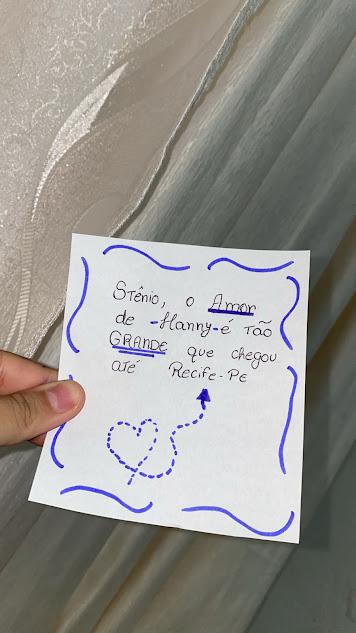 STênio, o Amor
de -Hanny- é TÃO
GRANDE que chegou
até Recife-PE